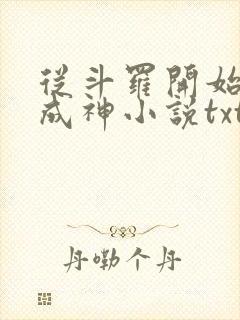 從斗羅開始
成神小説txt
丹嘞个丹